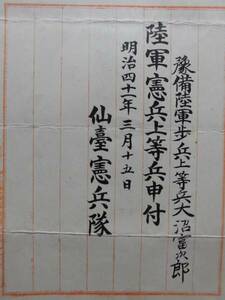 豫備陸軍歩兵上等兵大沼富次郎
陸軍憲兵上等兵申付
明治四十一年三月十五日
仙臺憲兵隊